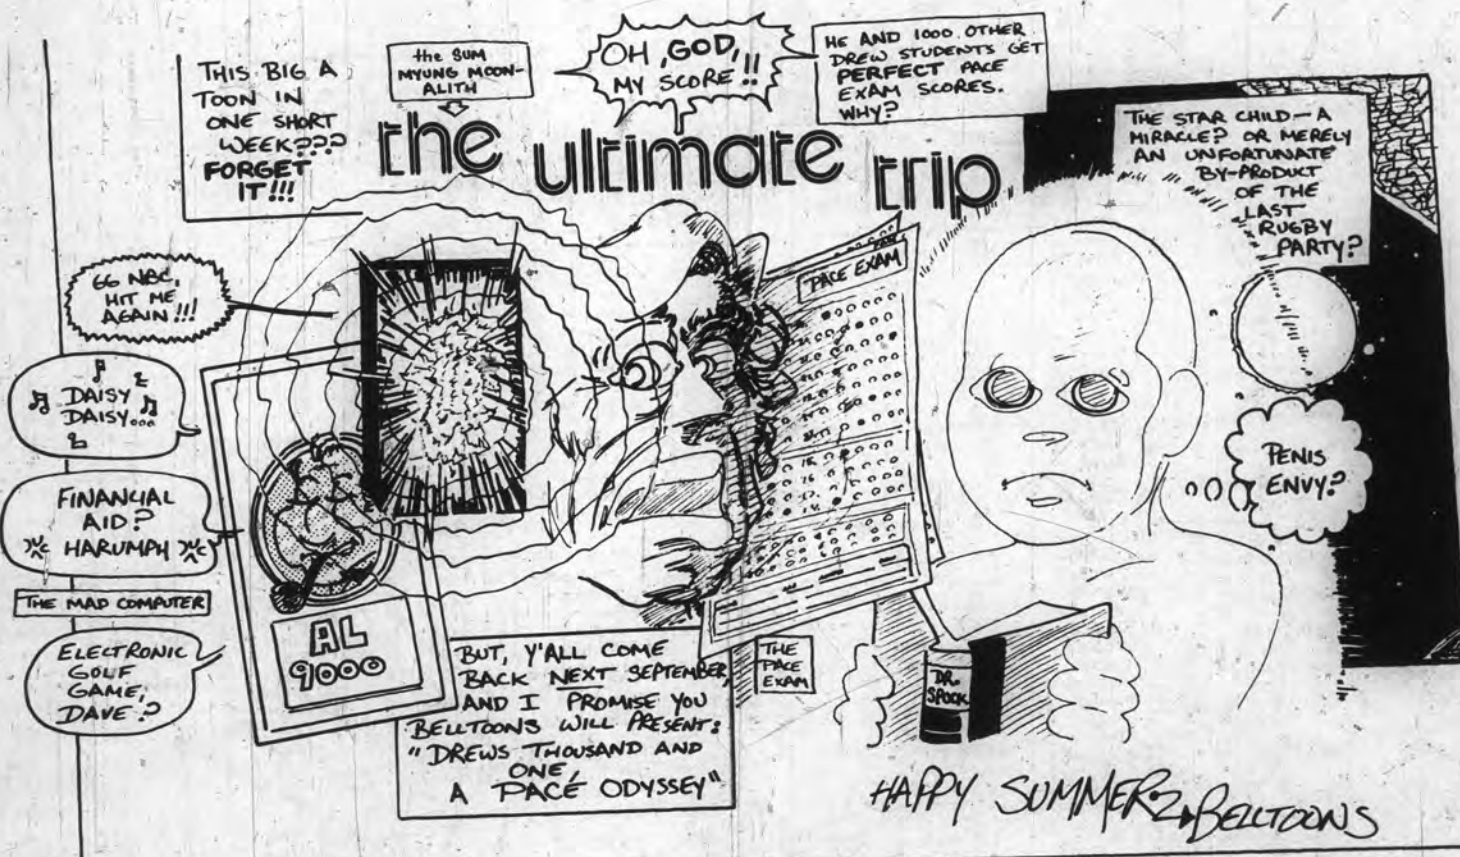 THIS BIG A
TOON IN
ONE SHORT
WEEK???
FORGET
IT!!!
the SUM
MYUNG MOON-
ALITH
OH, GOD,
MY SCORE!!
HE AND 1000 OTHER
DREW STUDENTS GET
PERFECT PACE
EXAM SCORES.
WHY?
the ultimate trip
THE STAR CHILD—A
MIRACLE? OR MERELY
AN UNFORTUNATE
BY-PRODUCT
OF THE
LAST
RUGBY
PARTY?
66 NBC,
HIT ME
AGAIN!!!
PACE EXAM
DAISY
DAISY...
PENIS
ENVY?
FINANCIAL
AID?
HARUMPH
THE MAD COMPUTER
ELECTRONIC
GOLF
GAME,
DAVE?
AL
9000
BUT, Y'ALL COME
BACK NEXT SEPTEMBER,
AND I PROMISE YOU
BELLTOONS WILL PRESENT:
"DREWS THOUSAND AND
ONE,
A PACE ODYSSEY"
THE
PACE
EXAM
DR.
SPOCK
HAPPY SUMMER BELLTOONS